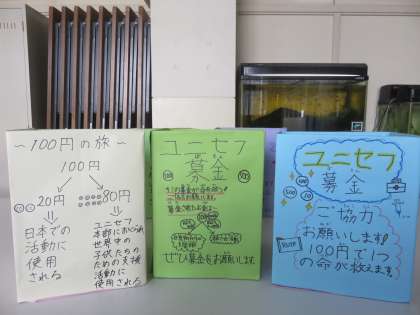 ～100円の旅～
100円
20円
80円
日本での
活動に
使用
される
ユニセフ
本部におくられ
世界中の
子供たちの
ための支援
活動に
使用される
ユニセフ
募金
100
ご協力お願いします。
ぜひ募金をお願いします
ユニセフ
募金
100
500
10
ご協力
お願いします!
100円で1つ
の命が救えます。